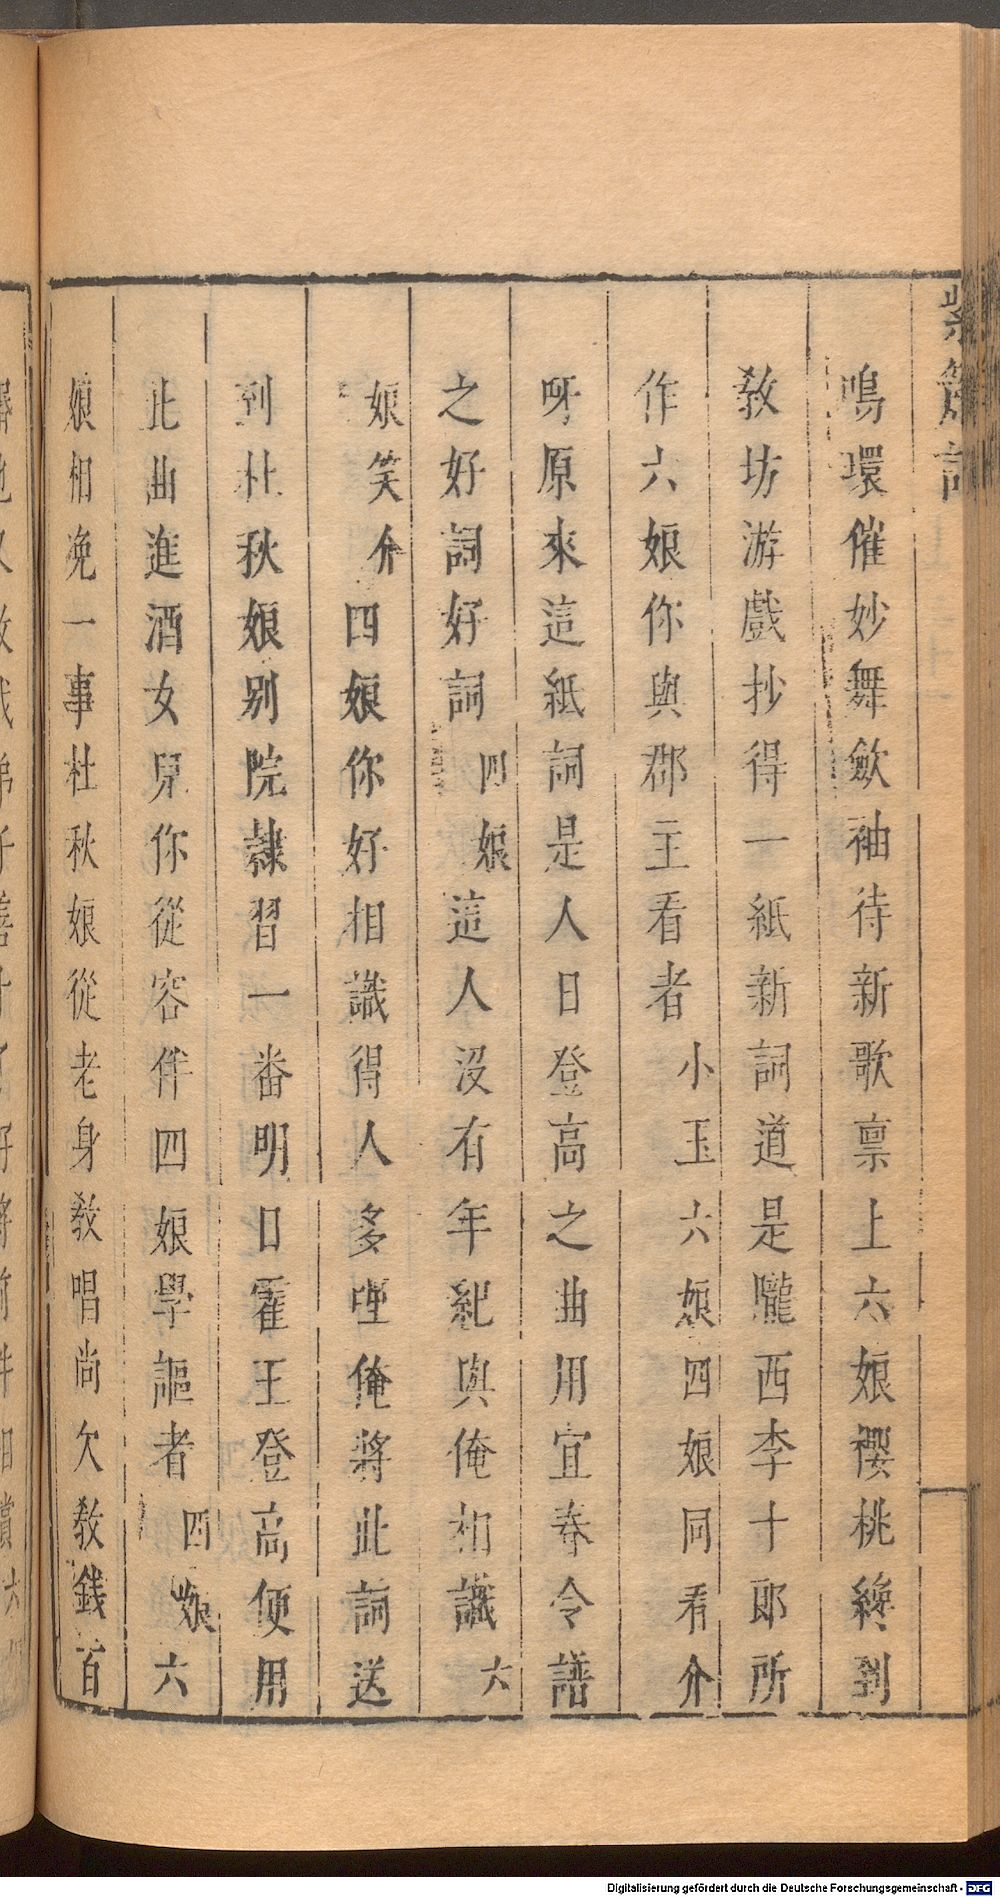 紫簫記
鳴環催妙舞歛袖待新歌禀上六娘櫻桃纔到
教坊游戲抄得一紙新詞道是隴西李十郎所
作六娘你與郡主看者小玉六娘四娘同看介
呀原來這紙詞是人日登高之曲用宜春令譜
之好詞好詞四娘這人没有年紀與俺相識六
娘笑介四娘你好相識得人多哩俺將此詞送
到杜秋娘别院隷習一番明日霍王登高便用
此曲進酒女兒你從容伴四娘學謳者四娘六
娘相浼一事杜秋娘從老身教唱尚欠教錢百
Digitalisierung gefördert durch die Deutsche Forschungsgemeinschaft - DFG